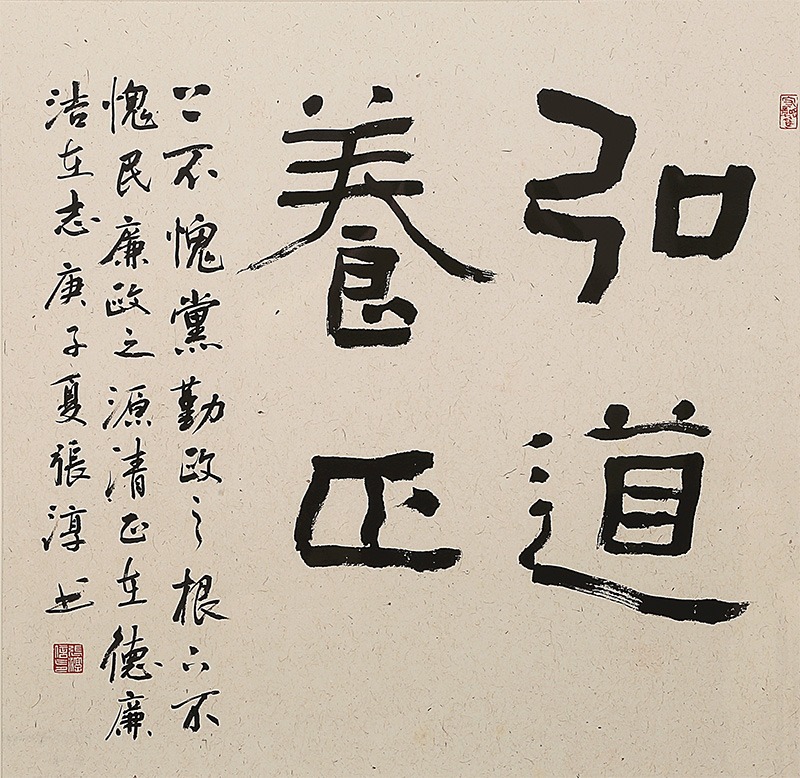 弘道
養正
上不愧黨勤政之根下不
愧民廉政之源清正在德廉
洁在志庚子夏張淳书